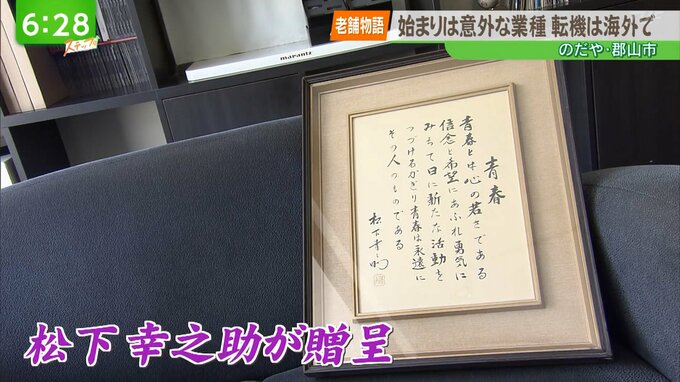 6:28
老舗物語
始まりは意外な業種 転機は海外で
のだや・郡山市
marantz
青春
青春とは心の若さである
信念と希望にあふれ勇気に
みちて日に新たな活動を
つづけるかぎり青春は永遠に
その人のものである
松下幸之助
松下幸之助が贈呈